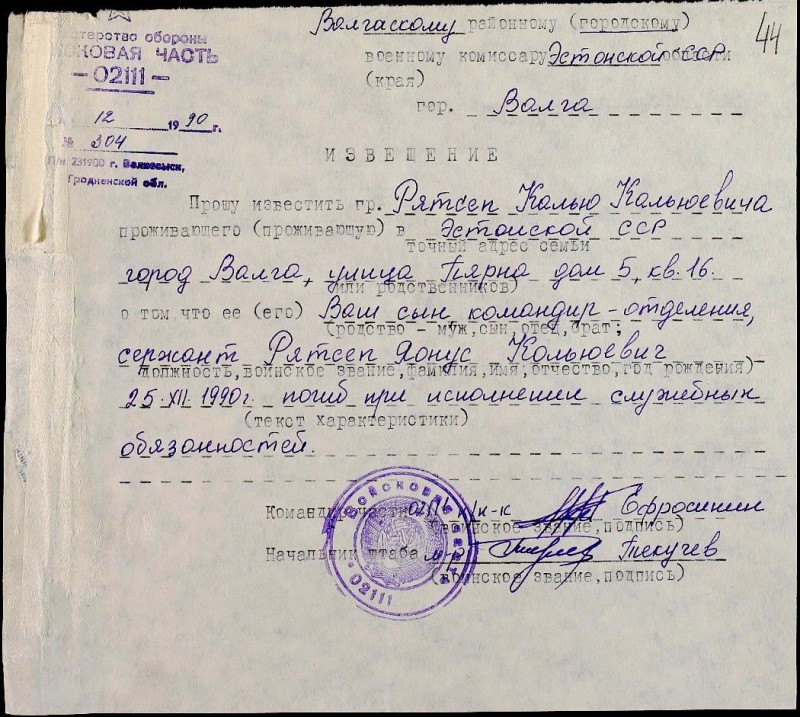 Волгаскому районному (городскому)
44
военному комиссару Эстонской ССР области
(края)
гор. Волга
Министерство обороны
ВОЙСКОВАЯ ЧАСТЬ
-02111-
12 1990 г.
№ 304
П/И 231900 г. Волковыск,
Гродненской обл.
ИЗВЕШЕНИЕ
Прошу известить гр. Рятсеп Колью Кальюевича
проживающего (проживающую) в Эстонской ССР
точный адрес семьи
город Валга, улица Пярна дом 5, кв. 16.
или родственников)
о том что ее (его) Ваш сын командир-отделения,
(родство - муж, сын, отец, брат;
сержант Рятсеп Яонус Кольюевич
должность, воинское звание, фамилия, имя, отчество, год рождения)
25.XII.1990г. погиб при исполнении служебных
(текст характеристики)
обязонностей.
Командир части 02111 п/п-к Ефросинин
(воинское звание, подпись)
Начальник штаба м-р Текучев
(воинское звание, подпись)
ВОЙСКОВАЯ ЧАСТЬ
02111